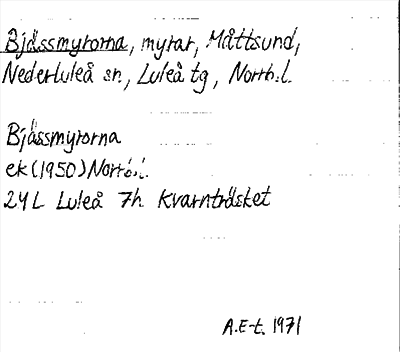 Bjässmyrorna, myrar, Måttsund,
Nederluleå sn., Luleå tg, Norrb.l.
Bjässmyrorna
ek (1950) Norrb.l.
24L Luleå 7h Kvarnträsket
A.E-t. 1971